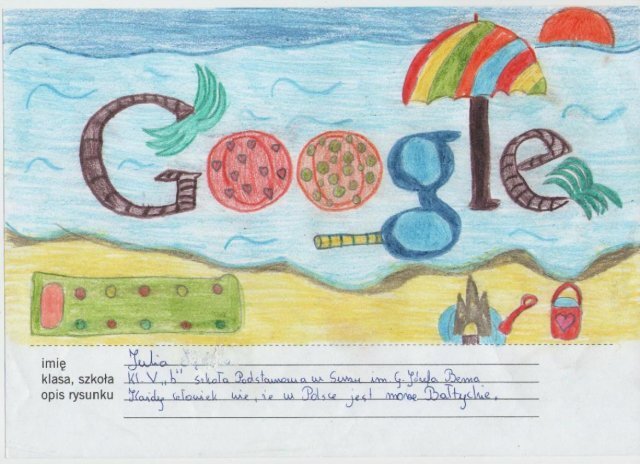 Google
imię Julia
klasa, szkoła Kl. V „b" Szkoła Podstawowa w Suszu im. G. Józefa Bema
opis rysunku Każdy człowiek wie, że w Polsce jest morze Bałtyckie.